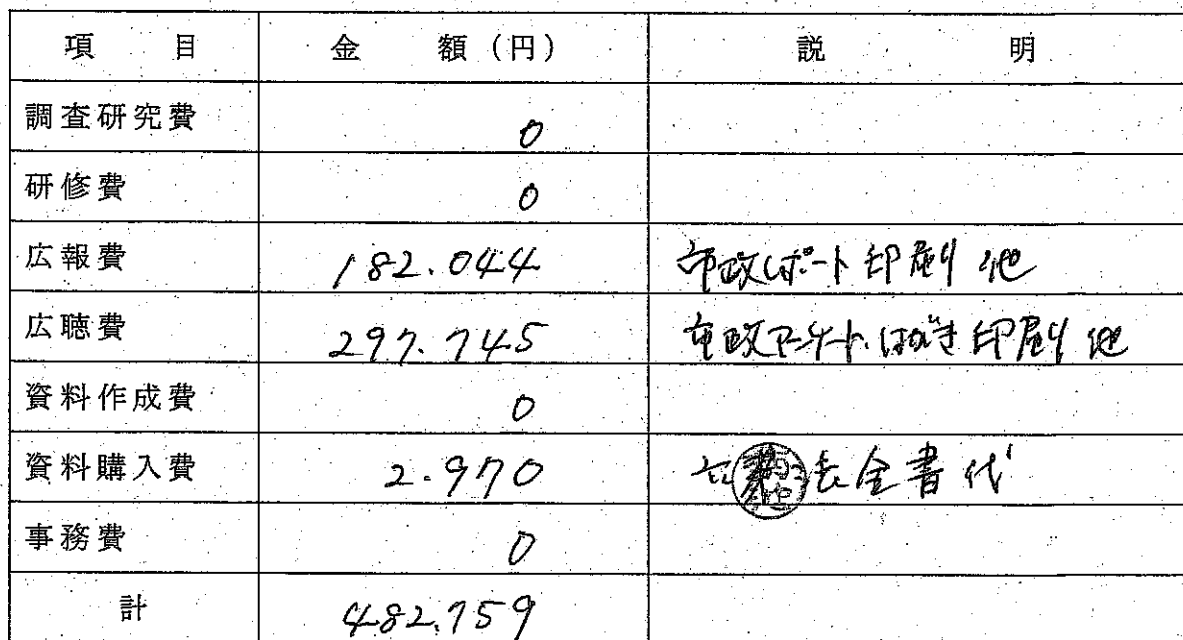 項 目 金 額（円） 説 明
調査研究費 0
研修費 0
広報費 182.044 市政レポート印刷 他
広聴費 297.745 市政アンケート.はがき印刷 他
資料作成費 0
資料購入費 2.970 六法全書代
事務費 0
計 482,759